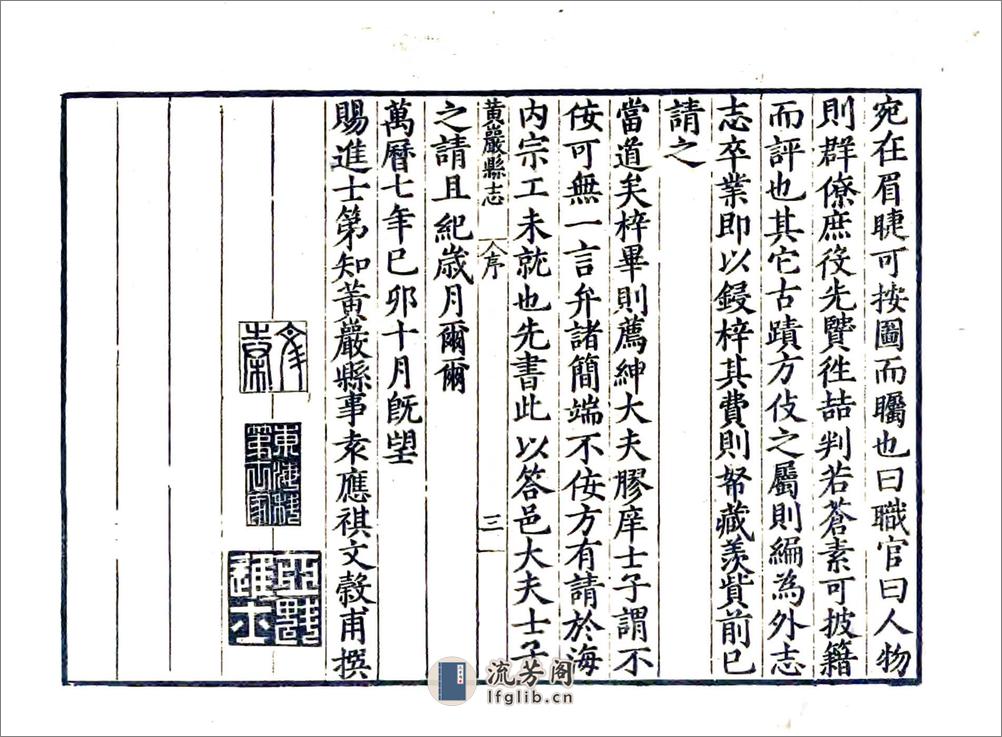 宛在眉睫可按圖而矚也曰職官曰人物
則群僚庶役先贒徃喆判若蒼素可披籍
而評也其它古蹟方伎之屬則編為外志
志卒業即以鋟梓其費則帑藏羨貲前已
請之
當道矣梓畢則薦紳大夫膠庠士子謂不
佞可無一言弁諸簡端不佞方有請於海
内宗工未就也先書此以答邑大夫士子
黃巖縣志 序 三
之請且紀歲月爾爾
萬曆七年己卯十月既望
賜進士第知黃巖縣事袁應祺文榖甫撰
流芳阁
lfglib.cn